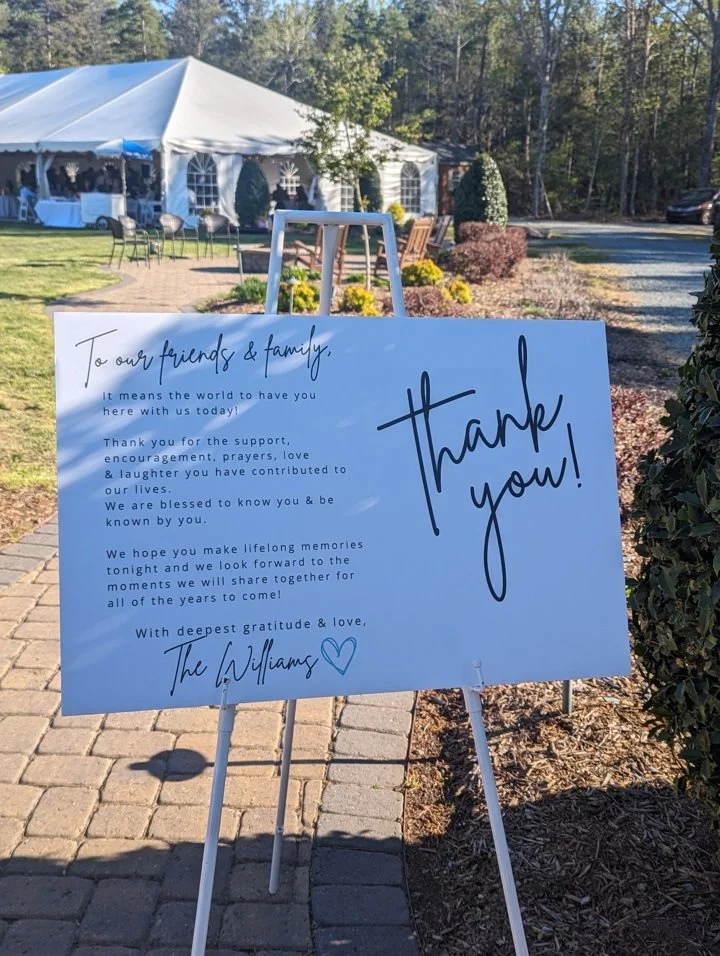 To our friends & family,
It means the world to have you
here with us today!
Thank you for the support,
encouragement, prayers, love
& laughter you have contributed to
our lives.
We are blessed to know you & be
known by you.
We hope you make lifelong memories
tonight and we look forward to the
moments we will share together for
all of the years to come!
With deepest gratitude & love,
The Williams
thank
you!